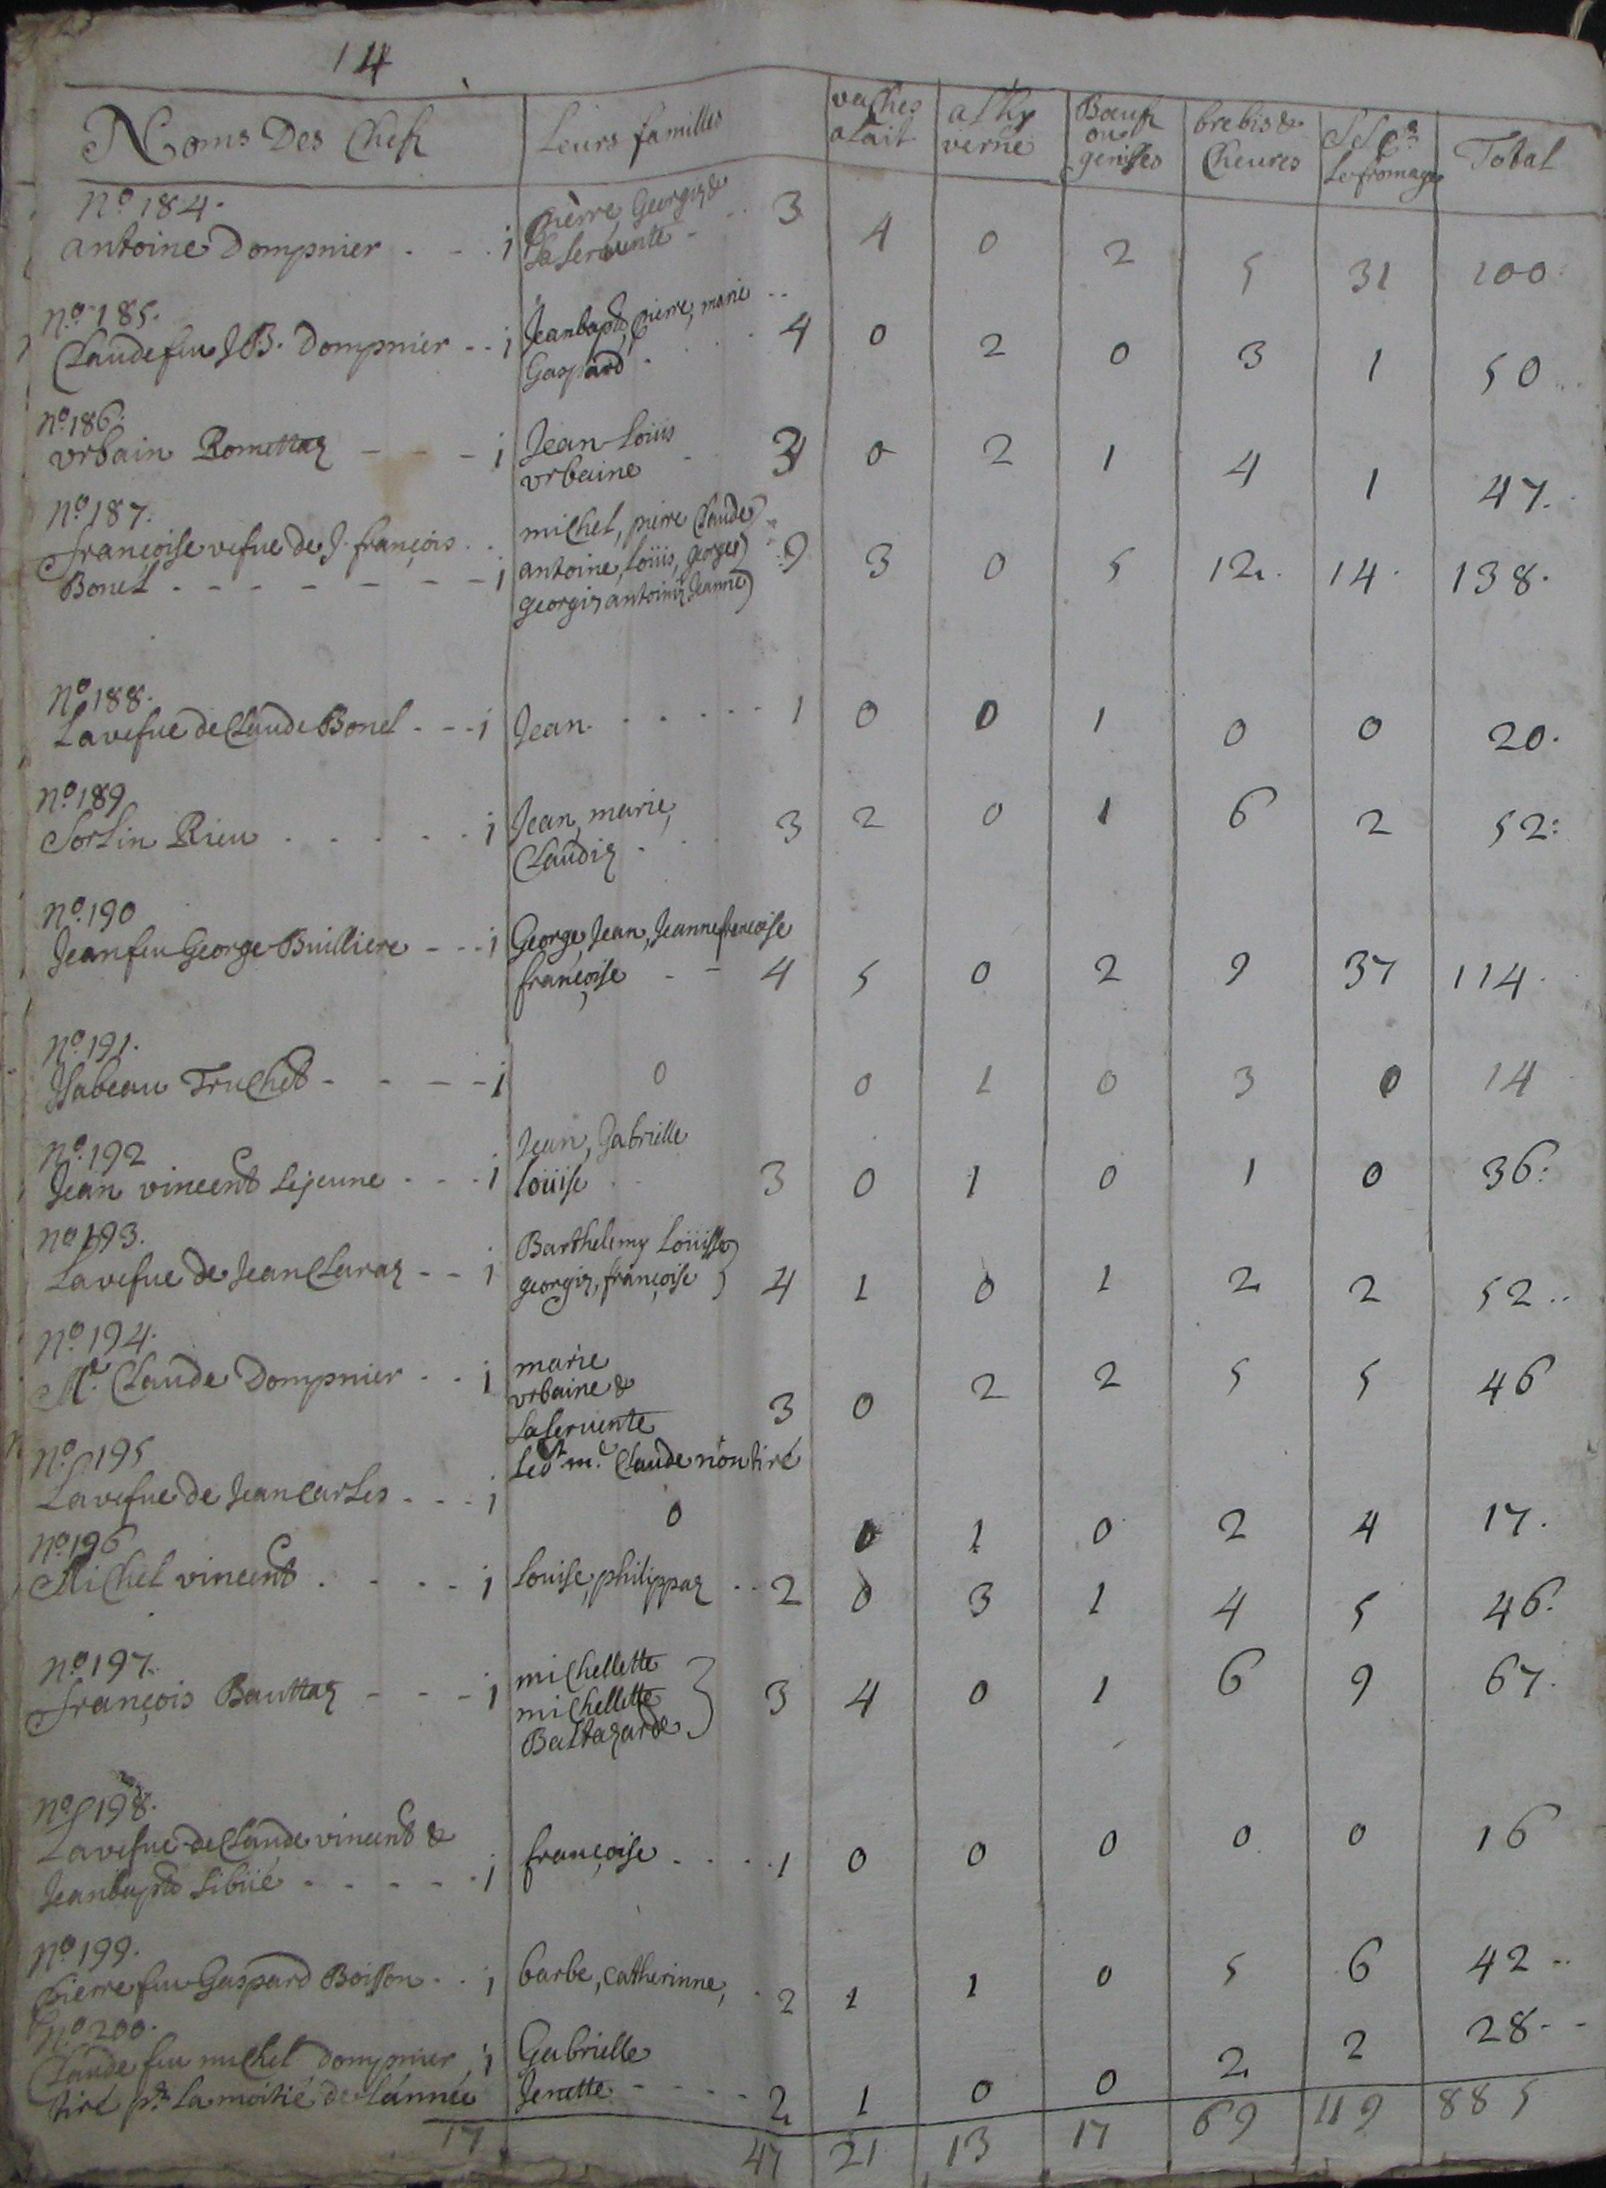 14
Noms Des Chefz Leurs familles vaches alait a Lhyverne Boeufs ou genisses brebis & Cheures Le fromage Total
No 184.
antoine Dompnier . . . 1 pierre Georgiz & La seruente - . . 3 4 0 2 5 31 100
No 185.
Claude feu J B. Dompnier . . 1 Jean bapte, pierre, marie . .
Gaspard . . . . 4 0 2 0 3 1 50 . .
No 186.
vrbain Romettaz - - - 1 Jean Loüis
vrbaine - 3 0 2 1 4 1 47.
No 187.
françoise vefue de J. françois . . michel, pierre Claude
Bonel . - - - - - - 1 antoine, Loüis, george 9 3 0 5 12. 14. 138.
georgiz antoinz Jeanne
No 188.
La vefue de Claude Bonel . - - 1 Jean . . . . . . 1 0 0 1 0 0 20.
No 189
Sorlin Rieu . . . . . 1 Jean, marie,
Claudiz . . . 3 2 0 1 6 2 52:
No 190
Jean feu George Builliere - - - 1 George, Jean, Jeanne françoise
françoise - - 4 5 0 2 9 37 114.
No 191.
Isabeau Truchet - - - - 1 0 0 1 0 3 0 14
No 192 Jean, Gabrielle
Jean vincent Lejeune . . . 1 Loüise . . 3 0 1 0 1 0 36:
No 193. Barthelemy Loüise
La vefue de Jean Claraz - - 1 georgiz, françoise } 4 1 0 1 2 2 52 . .
No 194.
Me. Claude Dompnier . . 1 marie
vrbaine &
La seruente 3 0 2 2 5 5 46
No 195 Led. me. Claude non tiré
La vefue de Jean Carles . . . 1 0 0 1 0 2 4 17.
No 196
Michel vincent . . . . 1 Louise, philippaz . . 2 0 3 1 4 5 46.
No 197.
françois Bauttaz - - - 1 michellette
michellette
Baltazarde } 3 4 0 1 6 9 67.
No 198.
La vefue de Claude vincent &
Jean bapte Sibüé . . . . . 1 françoise . . . . 1 0 0 0 0 0 16
No 199.
pierre feu Gaspard Boisson . . 1 barbe, catherinne, . 2 1 1 0 5 6 42 . .
No 200.
Claude feu michel Dompnier 1 Gabrielle
tiré pr. La moitié de L'année Jenette - - - - 2 1 0 0 2 2 28 . .
17 47 21 13 17 69 119 885